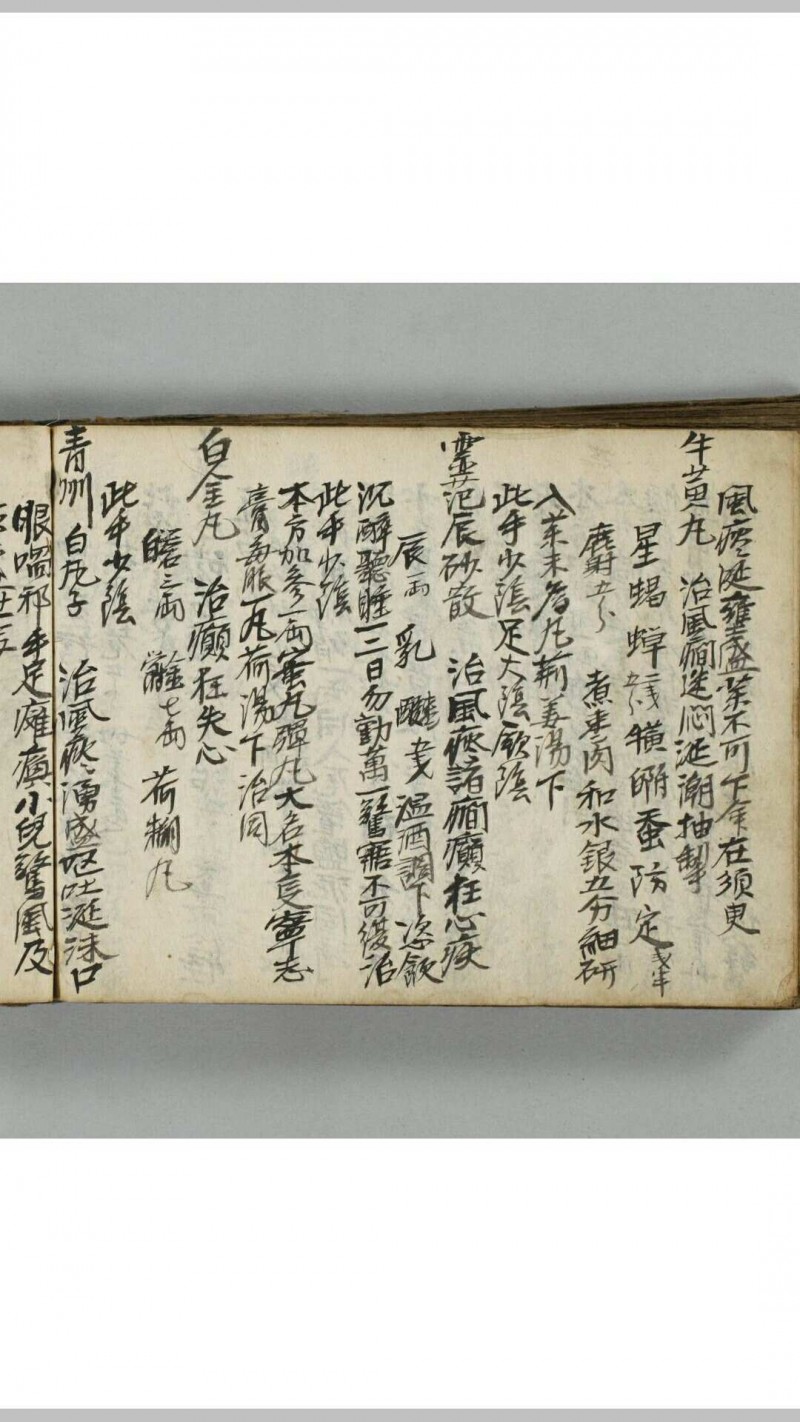 風痰涎壅盛藥不可下命在須臾
牛黃丸 治風癎迷悶涎潮抽掣
星蝎蟬 犢 蚕防定
麝五分 煮棗肉和水銀五分細研
入藥末為丸荊姜湯下
此手少陰足太陰厥陰
靈范辰砂散 治風痰諸癎癲狂心疾
辰一兩 乳 溫酒調下恣飲
沉醉聽睡一二日勿動萬一驚寤不可復治
此手少陰
本方加參一兩蜜丸彈丸大名本 寧志
膏每服一丸荷湯下治同
白金丸 治癲狂失心
白 三兩 七兩 荷糊丸
此手少陰
青州白丸子 治風痰湧盛嘔吐涎沫口
眼喎邪手足癱瘓小兒驚風及